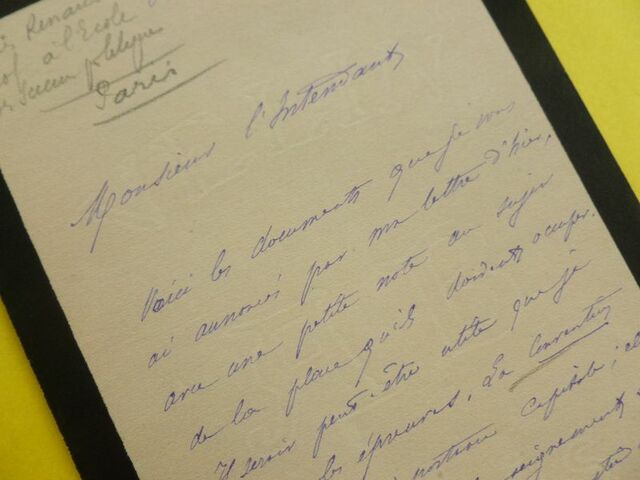 Renau
à l'Ecole
Paris
Monsieur l'Intendant
Voici les documents que je vous
ai annoncés par ma lettre d'hier,
avec une petite note au sujet
de la place qu'ils doivent occuper.
Il serait peut-être utile que je
les épreuves. La Convention
capitale;